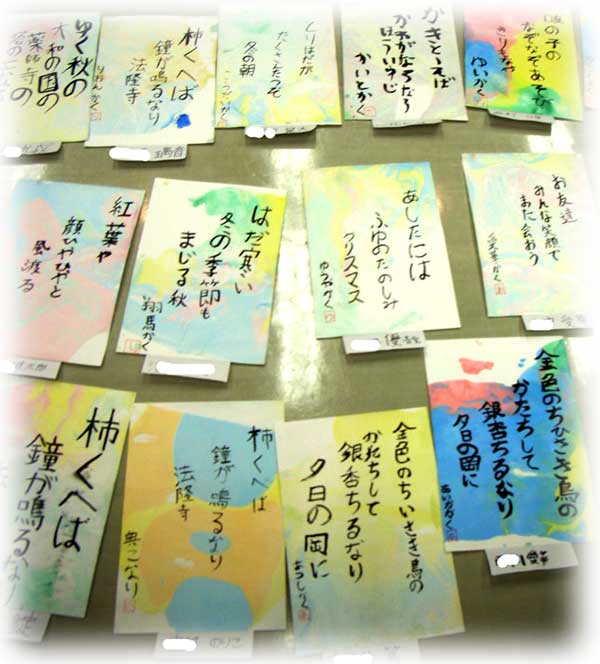 ゆく秋の
大和の国の
薬師寺の
柿くへば
鐘が鳴るなり
法隆寺
とりはだが
冬の朝
かきといえば
かいとかく
なぞなぞあそび
きりもなや
ゆいかく
紅葉や
顔ひやひやと
風渡る
はだ寒い
冬の季節も
まじる秋
翔馬かく
あしたには
ふゆのたのしみ
クリスマス
ゆうやかく
お友達
みんな笑顔で
また会おう
愛華かく
柿くへば
鐘が鳴るなり
柿くへば
鐘が鳴るなり
法隆寺
のりこ
金色のちいさき鳥の
かたちして
銀杏ちるなり
夕日の岡に
あつしかく
金色のちひさき鳥の
かたちして
銀杏ちるなり
夕日の岡に